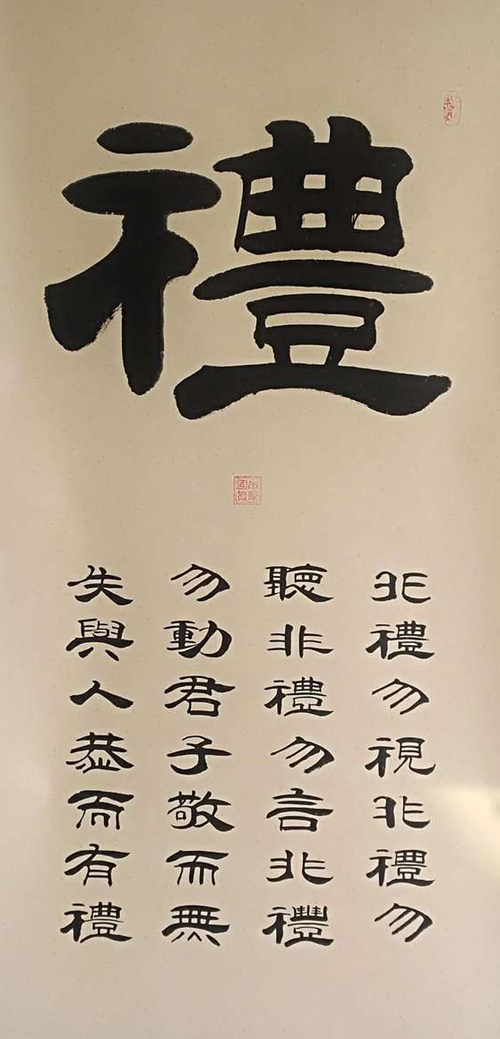 禮
非禮勿視非禮勿
聽非禮勿言非禮
勿動君子敬而無
失與人恭而有禮